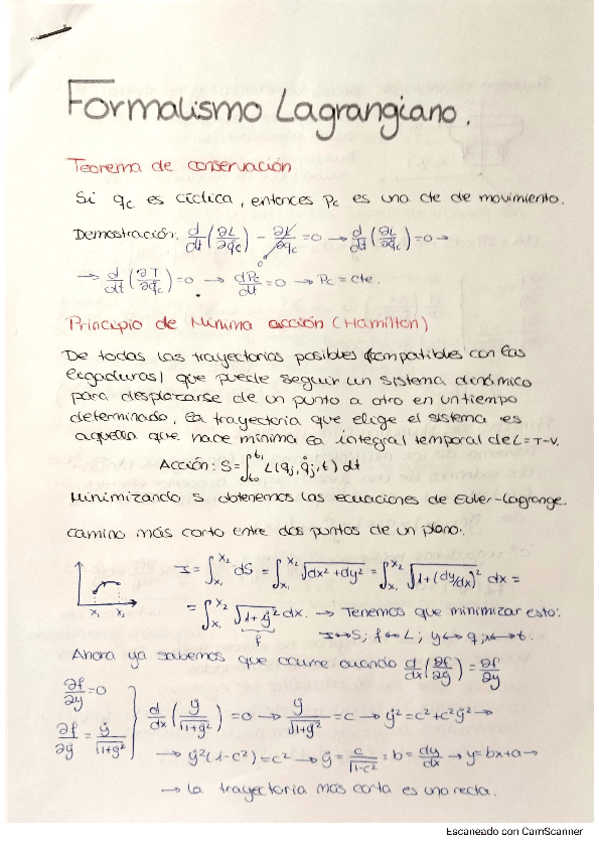 Formalismo Lagrangiano.
Teorema de conservación
Si q_c es cíclica, entonces p_c es una cte de movimiento.
Demostración: d/dt (∂L/∂q̇_c) − ∂L/∂q_c = 0 → d/dt (∂L/∂q̇_c) = 0 →
→ d/dt (∂T/∂q̇_c) = 0 → dp_c/dt = 0 → p_c = cte.
Principio de Mínima acción (Hamilton)
De todas las trayectorias posibles (compatibles con las
ligaduras) que puede seguir un sistema dinámico
para desplazarse de un punto a otro en un tiempo
determinado, la trayectoria que elige el sistema es
aquella que hace mínima la integral temporal de L=T-V.
Acción: S = ∫_{t₀}^{t₁} L(q_j, q̇_j, t) dt
Minimizando S obtenemos las ecuaciones de Euler-Lagrange.
Camino más corto entre dos puntos de un plano:
I = ∫_{x₁}^{x₂} dS = ∫_{x₁}^{x₂} √(dx² + dy²) = ∫_{x₁}^{x₂} √(1+(dy/dx)²) dx =
x₁ x₂
= ∫_{x₁}^{x₂} √(1+ẏ²) dx. → Tenemos que minimizar esto:
f
I↔S; f↔L; y↔q; x↔t.
Ahora ya sabemos que ocurre cuando d/dx (∂f/∂ẏ) = ∂f/∂y
∂f/∂y = 0
∂f/∂ẏ = ẏ/√(1+ẏ²) } d/dx (ẏ/√(1+ẏ²)) = 0 → ẏ/√(1+ẏ²) = c → ẏ² = c² + c²ẏ² →
→ ẏ²(1-c²) = c² → ẏ = c/√(1-c²) = b = dy/dx → y = bx+a →
→ La trayectoria más corta es una recta.
Escaneado con CamScanner